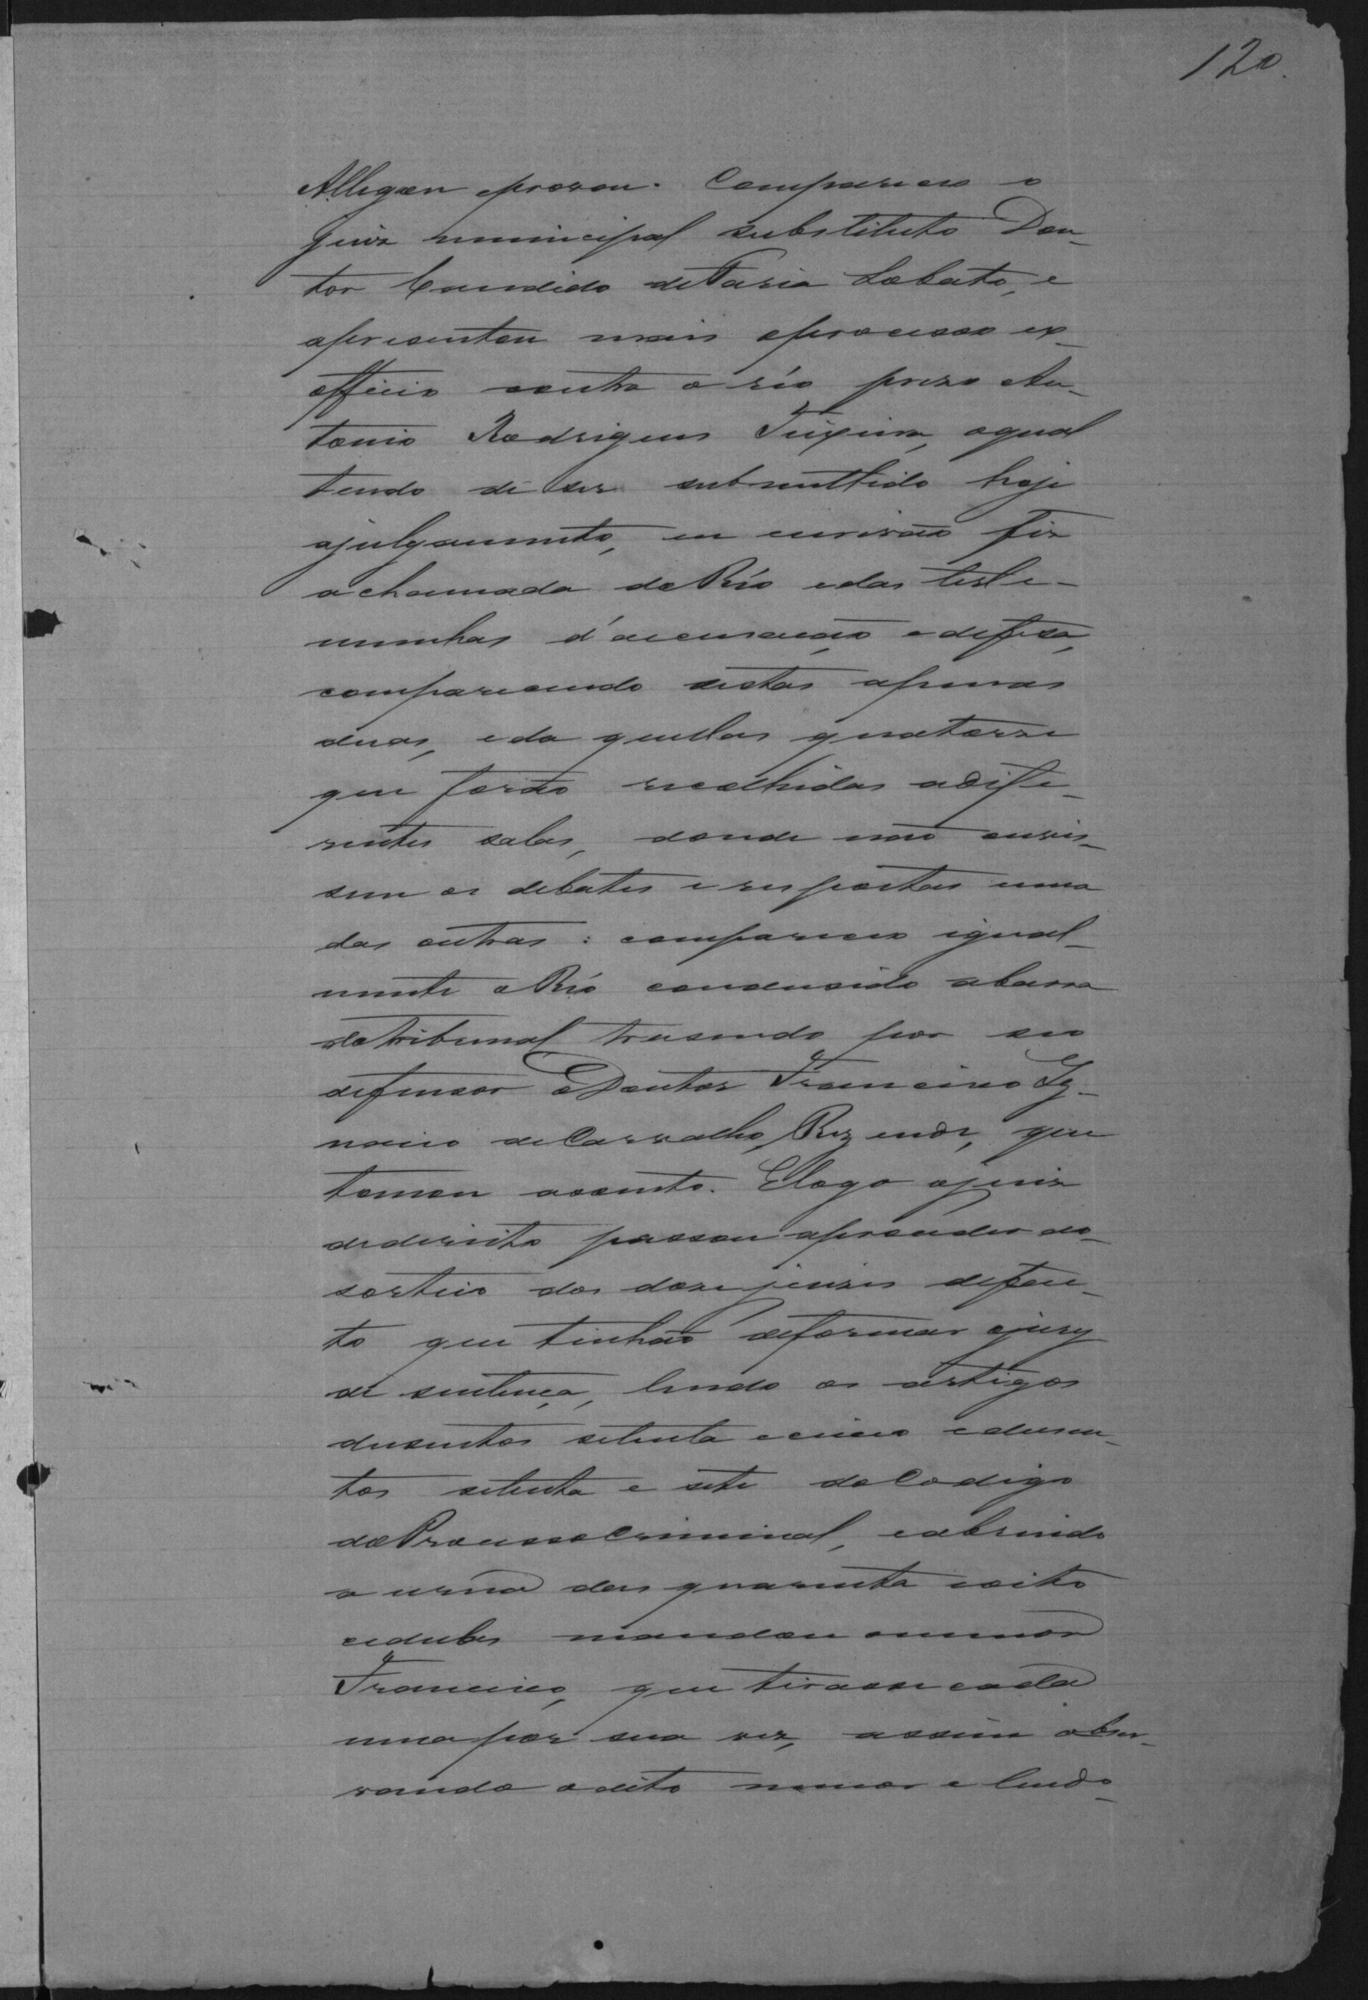 120.
Allegou e provou. Compareceu o
Juiz municipal substituto Dou-
tor Candido de Faria Lobato, e
apresentou mais o processo ex-
officio contra o réo prezo An-
tonio Rodrigues Teixeira, o qual
tendo de ser submettido hoje
a julgamento, eu escrivão fiz
a chamada do Réo e das teste-
munhas d'accusação e defesa,
comparecendo destas apenas
duas, e da quellas quatorze
que forão recolhidas a diffe-
rentes salas, donde não ouvis-
sem os debates e respostas umas
das outras: compareceu igual-
mente o Réo conduzido a barra
do tribunal trasendo por seo
defensor o Doutor Francisco Ig-
nacio de Carvalho Rezende, que
tomou assento. E logo o juiz
de direito passou a proceder ao
sorteio dos doze juizes de fac-
to que tinhão de formar o jury
de sentença, lendo os artigos
dusentos setenta e cinco e dusen-
tos setenta e sete do Codigo
do Processo Criminal, e abrindo
a urna das quarenta e oito
cedulas mandou o menor
Francisco, que tirasse cada
uma por sua vez, assim obser-
vando o dito menor e lendo-